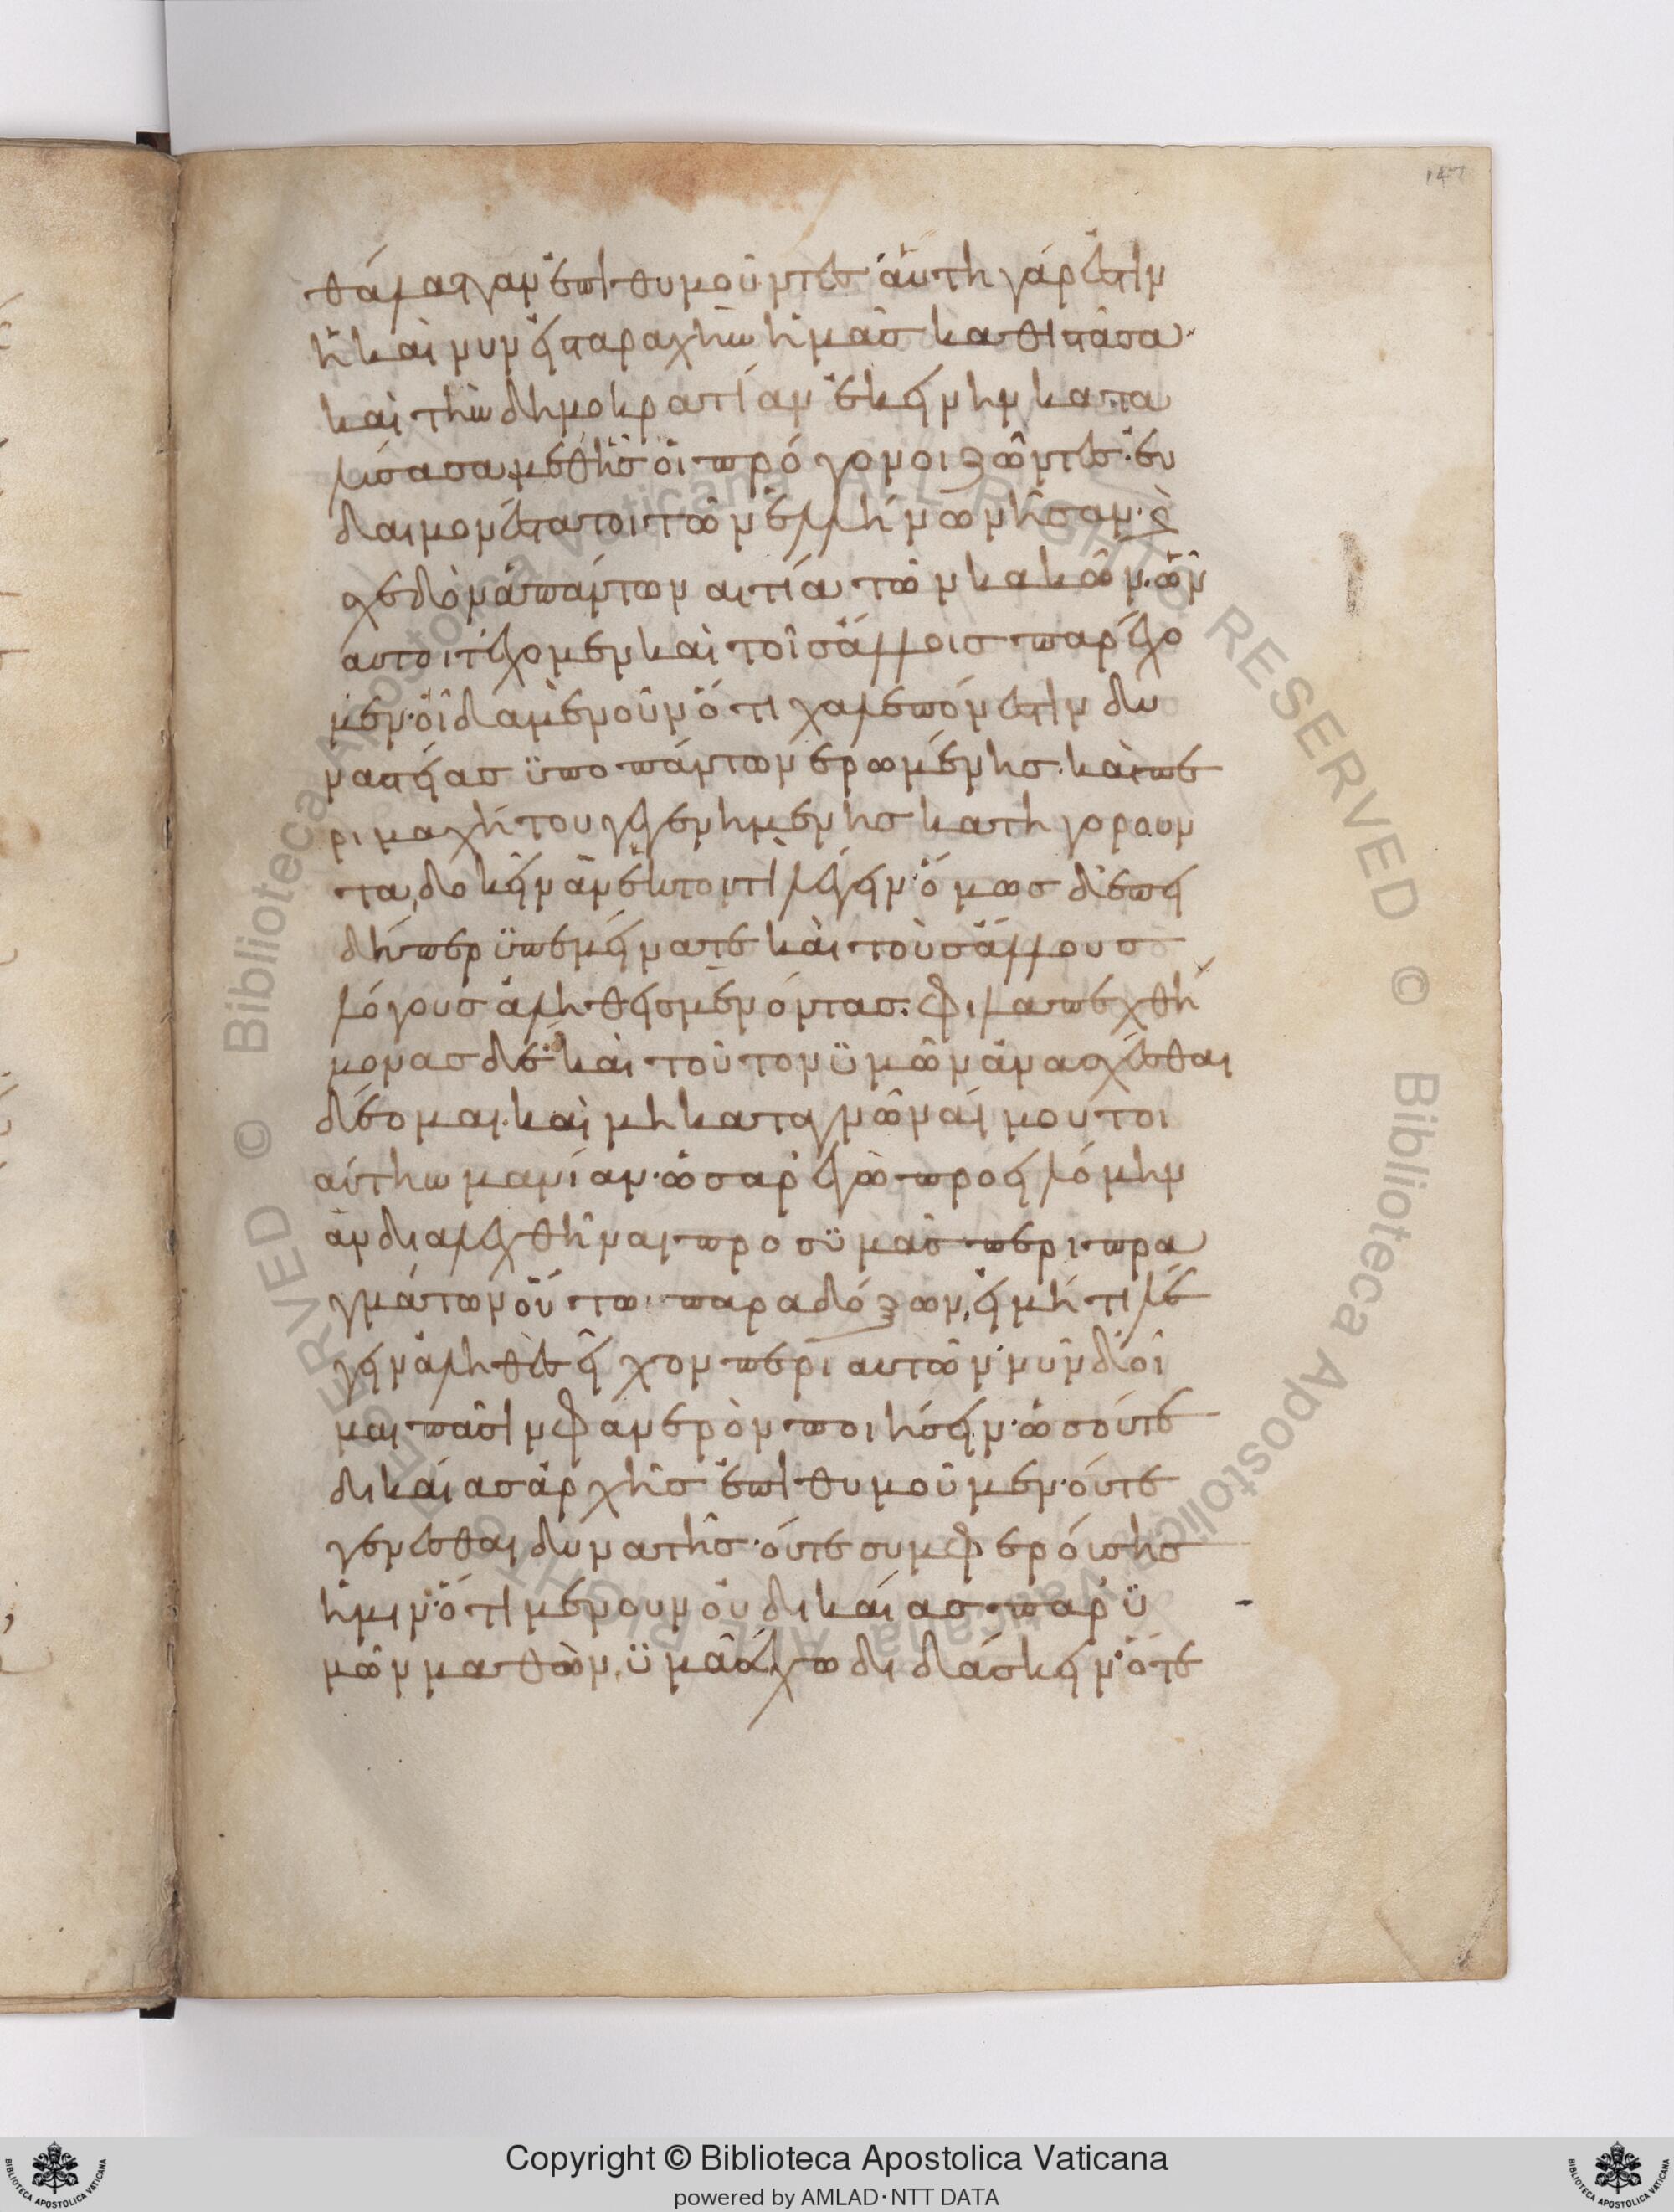 147
θάλασσαν ἐπιθυμοῦντες· αὕτη γάρ ἐστιν
ἡ καὶ νῦν εἰς ταραχὴν ἡμᾶς καθιστᾶσα·
καὶ τὴν δημοκρατίαν ἐκείνην κατα
λύσασα μεθ' ἧς οἱ πρόγονοι ζῶντες· εὐ
δαιμονέστατοι τῶν ἑλλήνων ἦσαν· σ
χεδὸν ἁπάντων αἰτία τῶν κακῶν· ὧν
αὐτοί τ' ἔχομεν καὶ τοῖς ἄλλοις παρέχο
μεν· οἶδα μὲν οὖν ὅτι χαλεπόν ἐστιν δυ
ναστείας ὑπὸ πάντων ἐρωμένης· καὶ πε
ριμαχήτου γεγενημένης κατηγοροῦν
τα, δοκεῖν ἀνεκτόν τι λέγειν· ὅμως δ' ἐπει
δήπερ ὑπεμείνατε καὶ τοὺς ἄλλους
λόγους ἀληθεῖς μὲν ὄντας· φιλαπεχθή
μονας δέ· καὶ τοῦτον ὑμῶν ἀνασχέσθαι
δέομαι· καὶ μὴ καταγνῶναί μου τοι
αύτην μανίαν· ὡς ἄρ' ἐγὼ προειλόμην
ἂν διαλεχθῆναι πρὸς ὑμᾶς περὶ πρα
γμάτων οὕτω παραδόξων, εἰ μή τι λέ
γειν ἀληθὲς εἶχον περὶ αὐτῶν· νῦν δ' οἶ
μαι πᾶσιν φανερὸν ποιήσειν· ὡς οὔτε
δικαίας ἀρχῆς ἐπιθυμοῦμεν· οὔτε
γενέσθαι δυνατῆς· οὔτε συμφεροίσης
ἡμῖν· ὅτι μὲν οὖν οὐ δικαίας παρ' ὑ
μῶν μαθὼν, ὑμᾶς ἔχω διδάσκειν· ὅτε
Copyright © Biblioteca Apostolica Vaticana
powered by AMLAD·NTT DATA